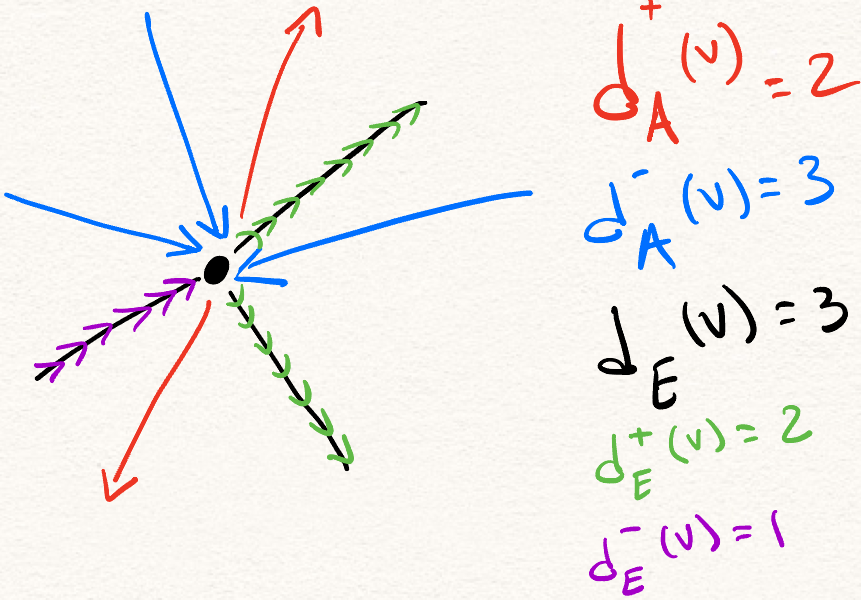 d⁺_A(v) = 2
d⁻_A(v) = 3
d_E(v) = 3
d⁺_E(v) = 2
d⁻_E(v) = 1